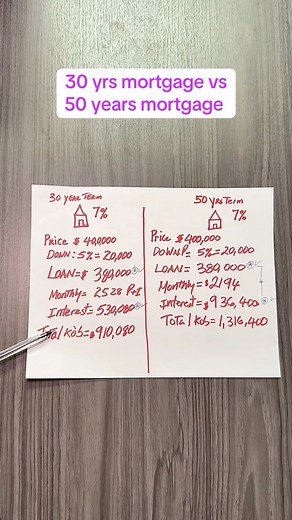 30 yrs mortgage vs
50 years mortgage
30 year Term
7%
Price $ 400,000
Down: 5% = 20,000
LOAN = $ 380,000
Monthly = 2528 P+I
Interest = 530,080
Total kòb = $910,080
50 yrs Term
7%
Price = $400,000
DOWN P. = 5% = 20,000
LOAN = 380,000
Monthly = $2194
Interest = $936,400
Total kòb = 1,316,400